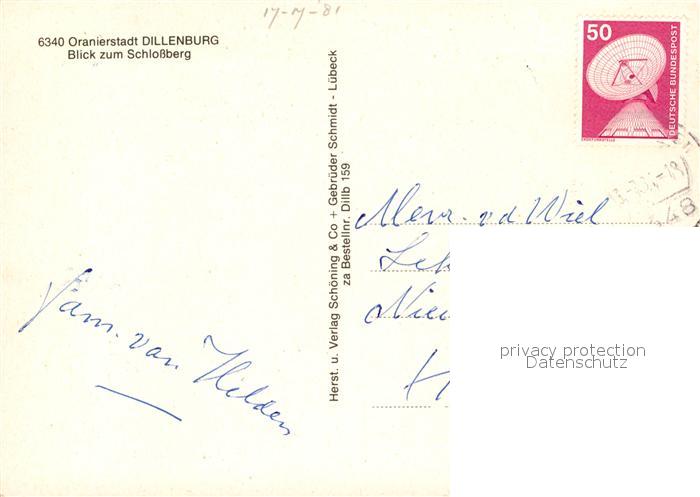 17-7-'81
6340 Oranierstadt DILLENBURG
Blick zum Schloßberg
Herst. u. Verlag Schöning & Co + Gebrüder Schmidt - Lübeck
za Bestellnr. Dillb 159
50
DEUTSCHE BUNDESPOST
Mevr. v.d. Wiel
Fam. van Hilden
privacy protection
Datenschutz